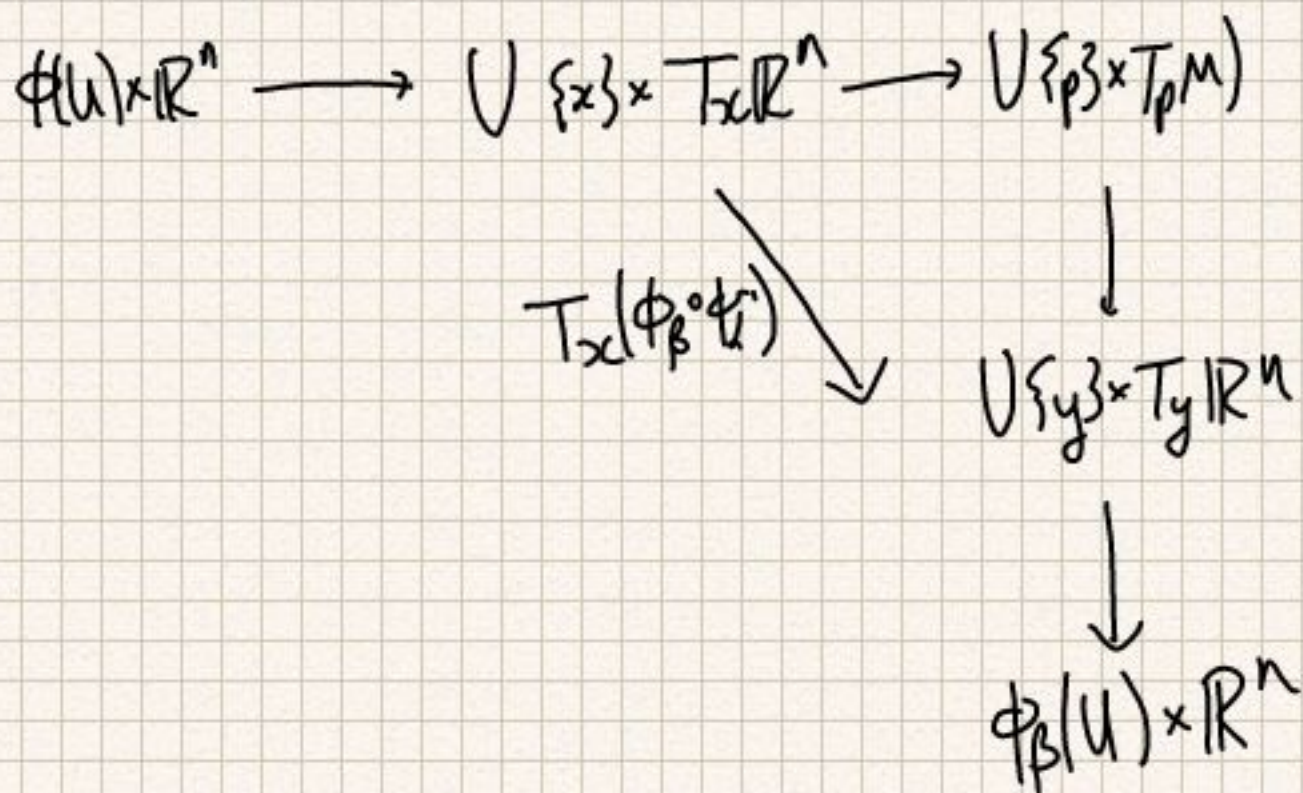 ϕ(U)×ℝⁿ ⟶ ⋃ {x}× Tₓℝⁿ ⟶ ⋃{p}×TₚM)
Tₓ(ϕᵦ∘
⋃{y}×T_yℝⁿ
ϕᵦ(U)×ℝⁿ